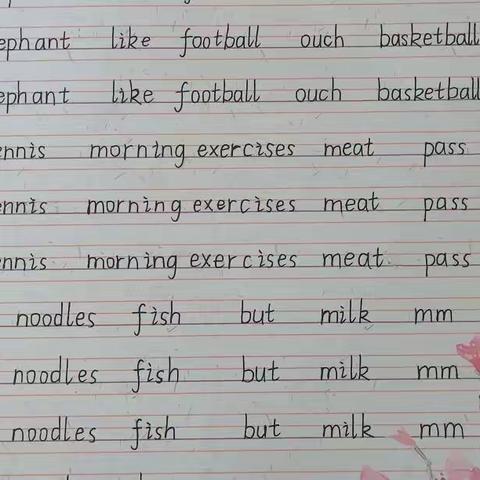 ephant like football ouch basketball
ephant like football ouch basketball
nnis morning exercises meat pass
nnis morning exercises meat pass
nnis morning exercises meat. pass
noodles fish but milk mm
noodles fish but milk mm
noodles fish but milk mm